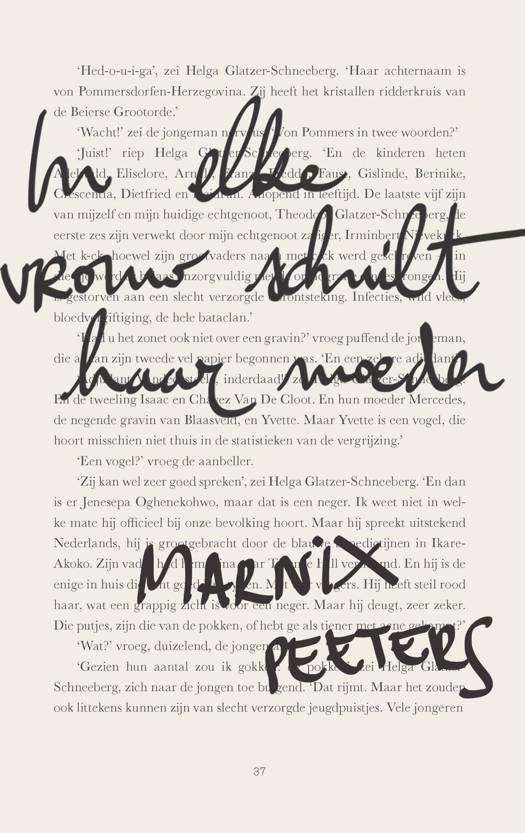 In elke
vrouw schuilt
haar moeder
MARNIX
PEETERS
‘Hed-o-u-i-ga’, zei Helga Glatzer-Schneeberg. ‘Haar achternaam is
von Pommersdorfen-Herzegovina. Zij heeft het kristallen ridderkruis van
de Beierse Grootorde.’
‘Wacht!’ zei de jongeman nerveus. ‘Von Pommers in twee woorden?’
‘Juist!’ riep Helga Glatzer-Schneeberg. ‘En de kinderen heten
Eliselore, Faust, Gislinde, Berinike,
Crescentia, Dietfried en Aflopend in leeftijd. De laatste vijf zijn
van mijzelf en mijn huidige echtgenoot, Theodor Glatzer-Schneeberg, de
eerste zes zijn verwekt door mijn echtgenoot zaliger, Irminbert
Met k-ck, hoewel zijn grootvaders naam met ck werd geschreven in
helaas onzorgvuldig Hij
is gestorven aan een slecht verzorgde Infecties, wild vlees,
bloedvergiftiging, de hele bataclan.’
‘Had u het zonet ook niet over een gravin?’ vroeg puffend de jongeman,
die aan zijn tweede vel papier begonnen was. ‘En een zekere adjudant?’
inderdaad!’ zei Helga Glatzer-Schneeberg.
‘En de tweeling Isaac en Chavez Van De Cloot. En hun moeder Mercedes,
de negende gravin van Blaasveld, en Yvette. Maar Yvette is een vogel, die
hoort misschien niet thuis in de statistieken van de vergrijzing.’
‘Een vogel?’ vroeg de aanbeller.
‘Zij kan wel zeer goed spreken’, zei Helga Glatzer-Schneeberg. ‘En dan
is er Jenesepa Oghenekohwo, maar dat is een neger. Ik weet niet in wel-
ke mate hij officieel bij onze bevolking hoort. Maar hij spreekt uitstekend
Nederlands, hij is grootgebracht door de blauwe benedictijnen in Ikare-
Akoko. Zijn vader had hem naar Hill vernoemd. En hij is de
enige in huis die kan Met vingers. Hij heeft steil rood
haar, wat een grappig zicht is voor een neger. Maar hij deugt, zeer zeker.
Die putjes, zijn die van de pokken, of hebt ge als tiener met acne gekampt?’
‘Wat?’ vroeg, duizelend, de jongeman.
‘Gezien hun aantal zou ik gokken op pokken’, zei Helga Glatzer-
Schneeberg, zich naar de jongen toe buigend. ‘Dat rijmt. Maar het zouden
ook littekens kunnen zijn van slecht verzorgde jeugdpuistjes. Vele jongeren
37